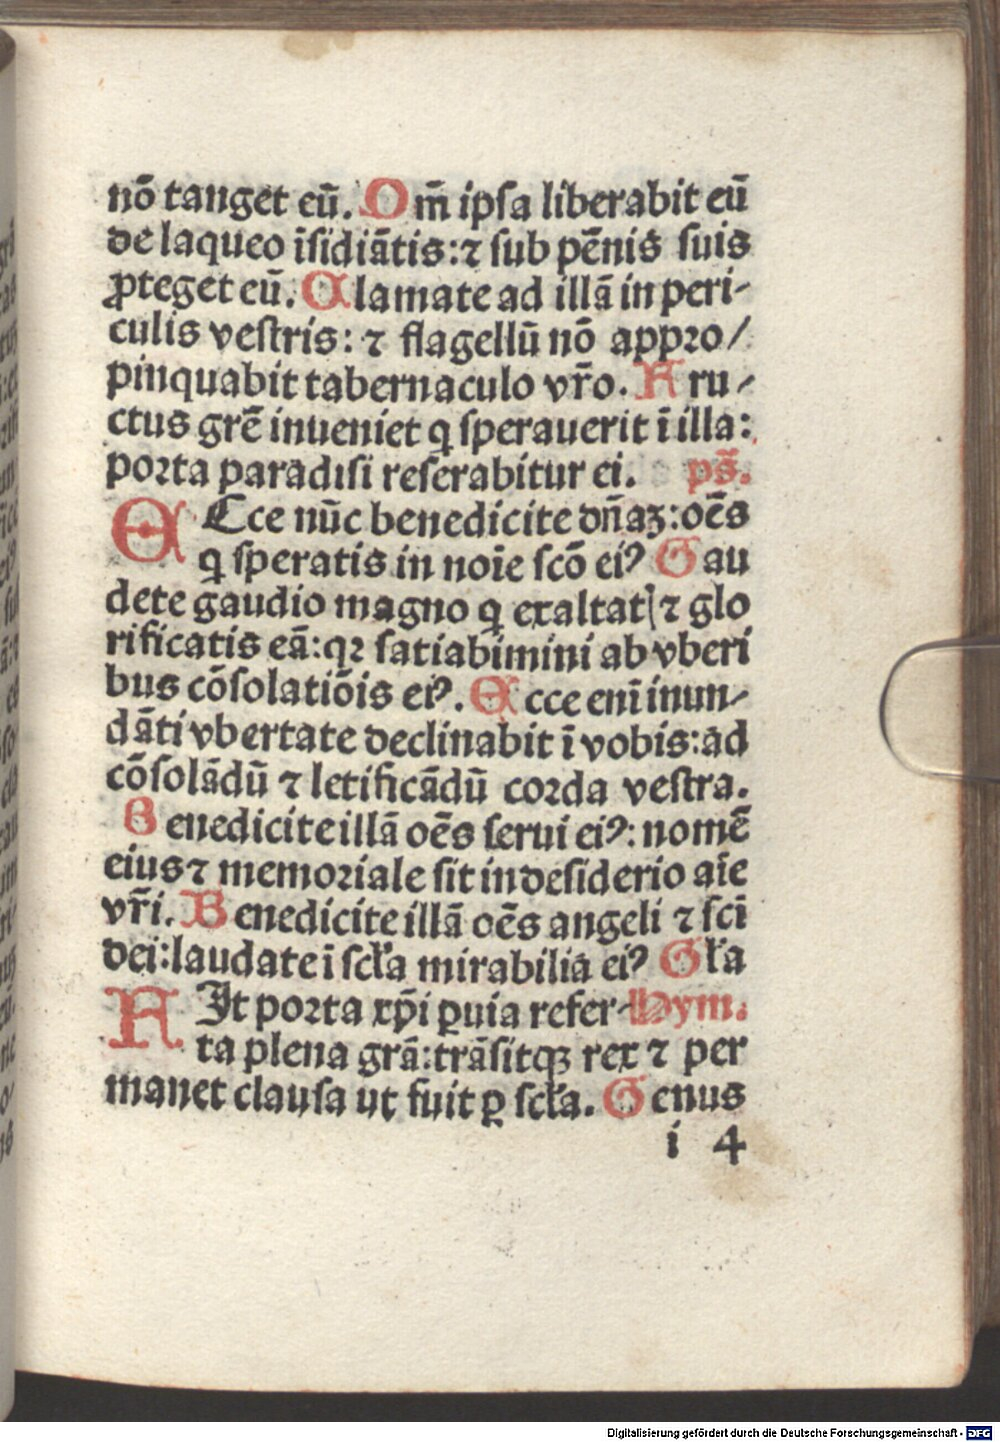 nō tanget eū. Om̄ ipſa liberabit eū
de laqueo īſidiātis: ⁊ ſub pēnis ſuis
ꝓteget eū. Clamate ad illā in peri-
culis veſtris: ⁊ flagellū nō appꝛo/
pinquabit tabernaculo vr̄o. Fru-
ctus grē inueniet q ſperauerit ī illa:
poꝛta paradiſi reſerabitur ei. ps̄.
ECce nūc benedicite dn̄aꝫ: oēs
q ſperatis in noīe ſcō eiꝰ Gau
dete gaudio magno q exaltat⁊ glo
rificatis eā: qꝛ ſatiabimini ab vberi
bus cōſolatiōis eiꝰ. Ecce enī inun-
dāti vbertate declinabit ī vobis: ad
cōſolādū ⁊ letificādū coꝛda veſtra.
Benedicite illā oēs ſerui eiꝰ: nomē
eius ⁊ memoꝛiale ſit in deſiderio aīe
vr̄i. Benedicite illā oēs angeli ⁊ ſcī
dei: laudate ī ſcl̄a mirabilia eiꝰ Gl̄a
FIt poꝛta xp̄i ꝑuia refer- Hym.
ta plena grā: trāſitqꝫ rex ⁊ per
manet clauſa ut fuit ꝑ ſcl̄a. Genus
i 4
Digitalisierung gefördert durch die Deutsche Forschungsgemeinschaft - DFG